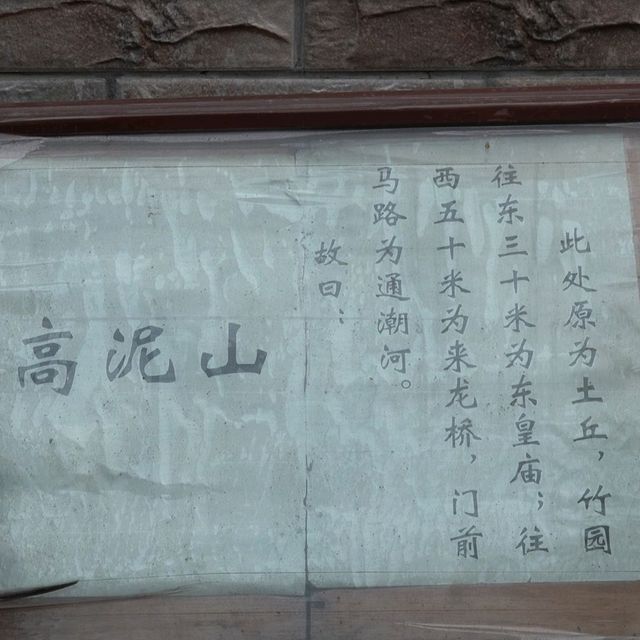 此处原为土丘，竹园
往东三十米为东皇庙；往
西五十米为来龙桥，门前
马路为通潮河。
故曰：
高泥山